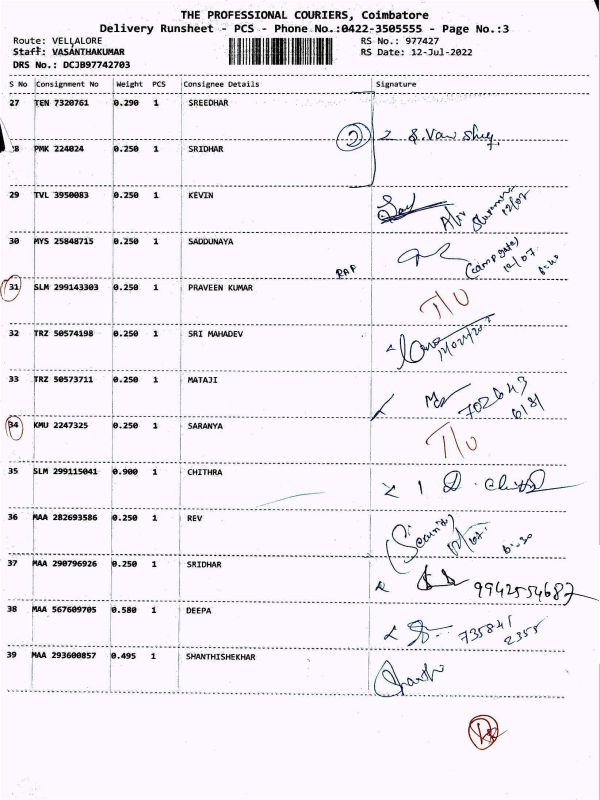 THE PROFESSIONAL COURIERS, Coimbatore
Delivery Runsheet - PCS - Phone No.:0422-3505555 - Page No.:3
Route: VELLALORE RS No.: 977427
Staff: VASANTHAKUMAR RS Date: 12-Jul-2022
DRS No.: DCJB97742703
S No Consignment No Weight PCS Consignee Details Signature
27 TEN 7320761 0.290 1 SREEDHAR
28 PMK 224024 0.250 1 SRIDHAR
29 TVL 3950083 0.250 1 KEVIN
12/07
30 MYS 25848715 0.250 1 SADDUNAYA
12/07
31 SLM 299143303 0.250 1 PRAVEEN KUMAR
T/O
32 TRZ 50574198 0.250 1 SRI MAHADEV
33 TRZ 50573711 0.250 1 MATAJI
34 KMU 2247325 0.250 1 SARANYA
T/O
35 SLM 299115041 0.900 1 CHITHRA
36 MAA 282693586 0.250 1 REV
Security
37 MAA 290796926 0.250 1 SRIDHAR
9942554687
38 MAA 567609705 0.580 1 DEEPA
735841
2355
39 MAA 293600857 0.495 1 SHANTHISHEKHAR